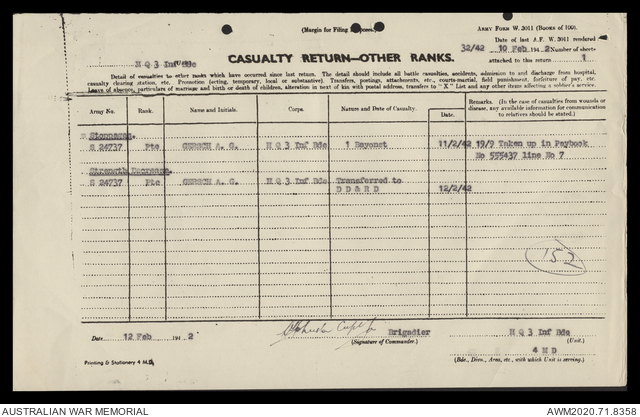 (Margin for Filing Purposes.)
ARMY FORM W. 3011 (Books of 100).
Date of last A.F. W. 3011 rendered
32/42 10 Feb 1942 Number of sheets
attached to this return 1
H Q 3 Inf Bde
CASUALTY RETURN—OTHER RANKS.
Detail of casualties to other ranks which have occurred since last return. The detail should include all battle casualties, accidents, admission to and discharge from hospital,
casualty clearing station, etc. Promotion (acting, temporary, local or substantive). Transfers, postings, attachments, etc., courts-martial, field punishments, forfeiture of pay, etc.
Leave of absence, particulars of marriage and birth or death of children, alteration in next of kin with postal address, transfers to "X" List and any other items affecting a soldier's service.
Army No. Rank. Name and Initials. Corps. Nature and Date of Casualty. Date. Remarks. (In the case of casualties from wounds or disease, any available information for communication to relatives should be stated.)
S 24737 Pte GERSCH A. G. H Q 3 Inf Bde 1 Bayonet 11/2/42 19/9 Taken up in Paybook
No 555437 line No 7
Strength Decrease.
S 24737 Pte GERSCH A. G. H Q 3 Inf Bde Transferred to
D D & R D 12/2/42
152
Date 12 Feb 1942 Brigadier H Q 3 Inf Bde
(Signature of Commander.) (Unit.)
4 M D
Printing & Stationery 4 M.D. (Bde., Divn., Area, etc., with which Unit is serving.)
AUSTRALIAN WAR MEMORIAL AWM2020.71.8358